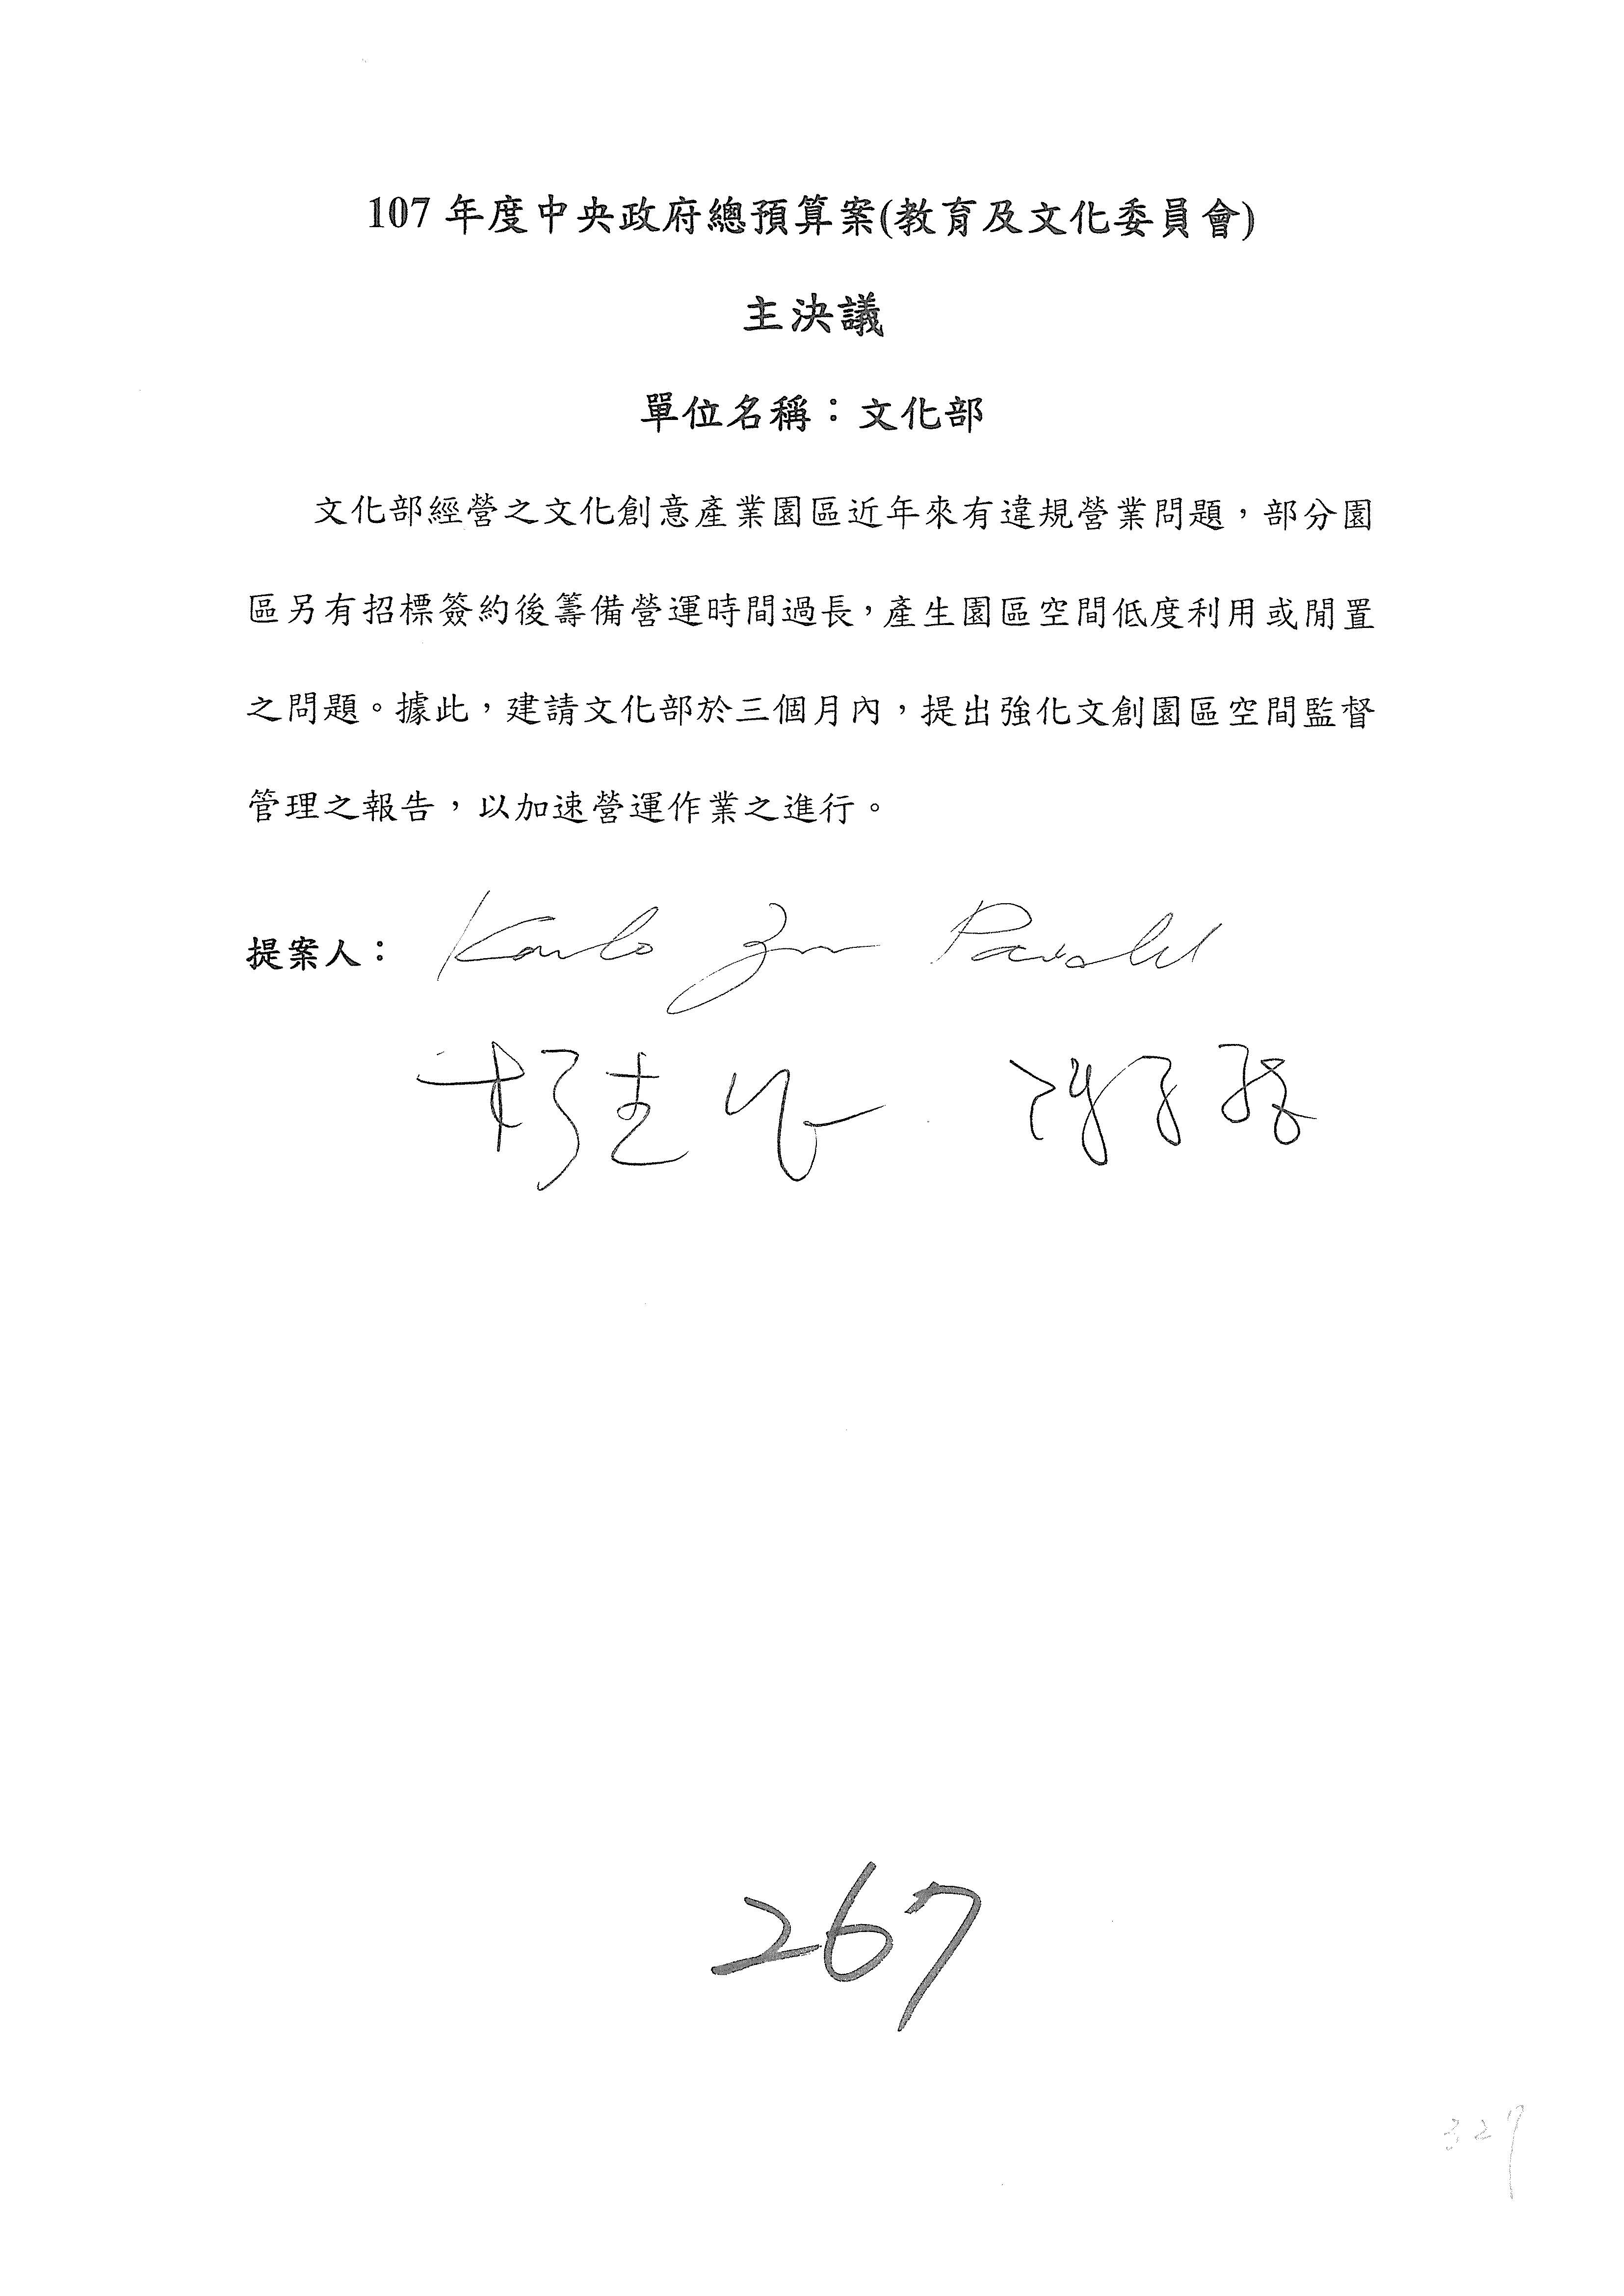 107 年度中央政府總預算案(教育及文化委員會)
主決議
單位名稱：文化部
文化部經營之文化創意產業園區近年來有違規營業問題，部分園
區另有招標簽約後籌備營運時間過長，產生園區空間低度利用或閒置
之問題。據此，建請文化部於三個月內，提出強化文創園區空間監督
管理之報告，以加速營運作業之進行。
提案人：
267
327